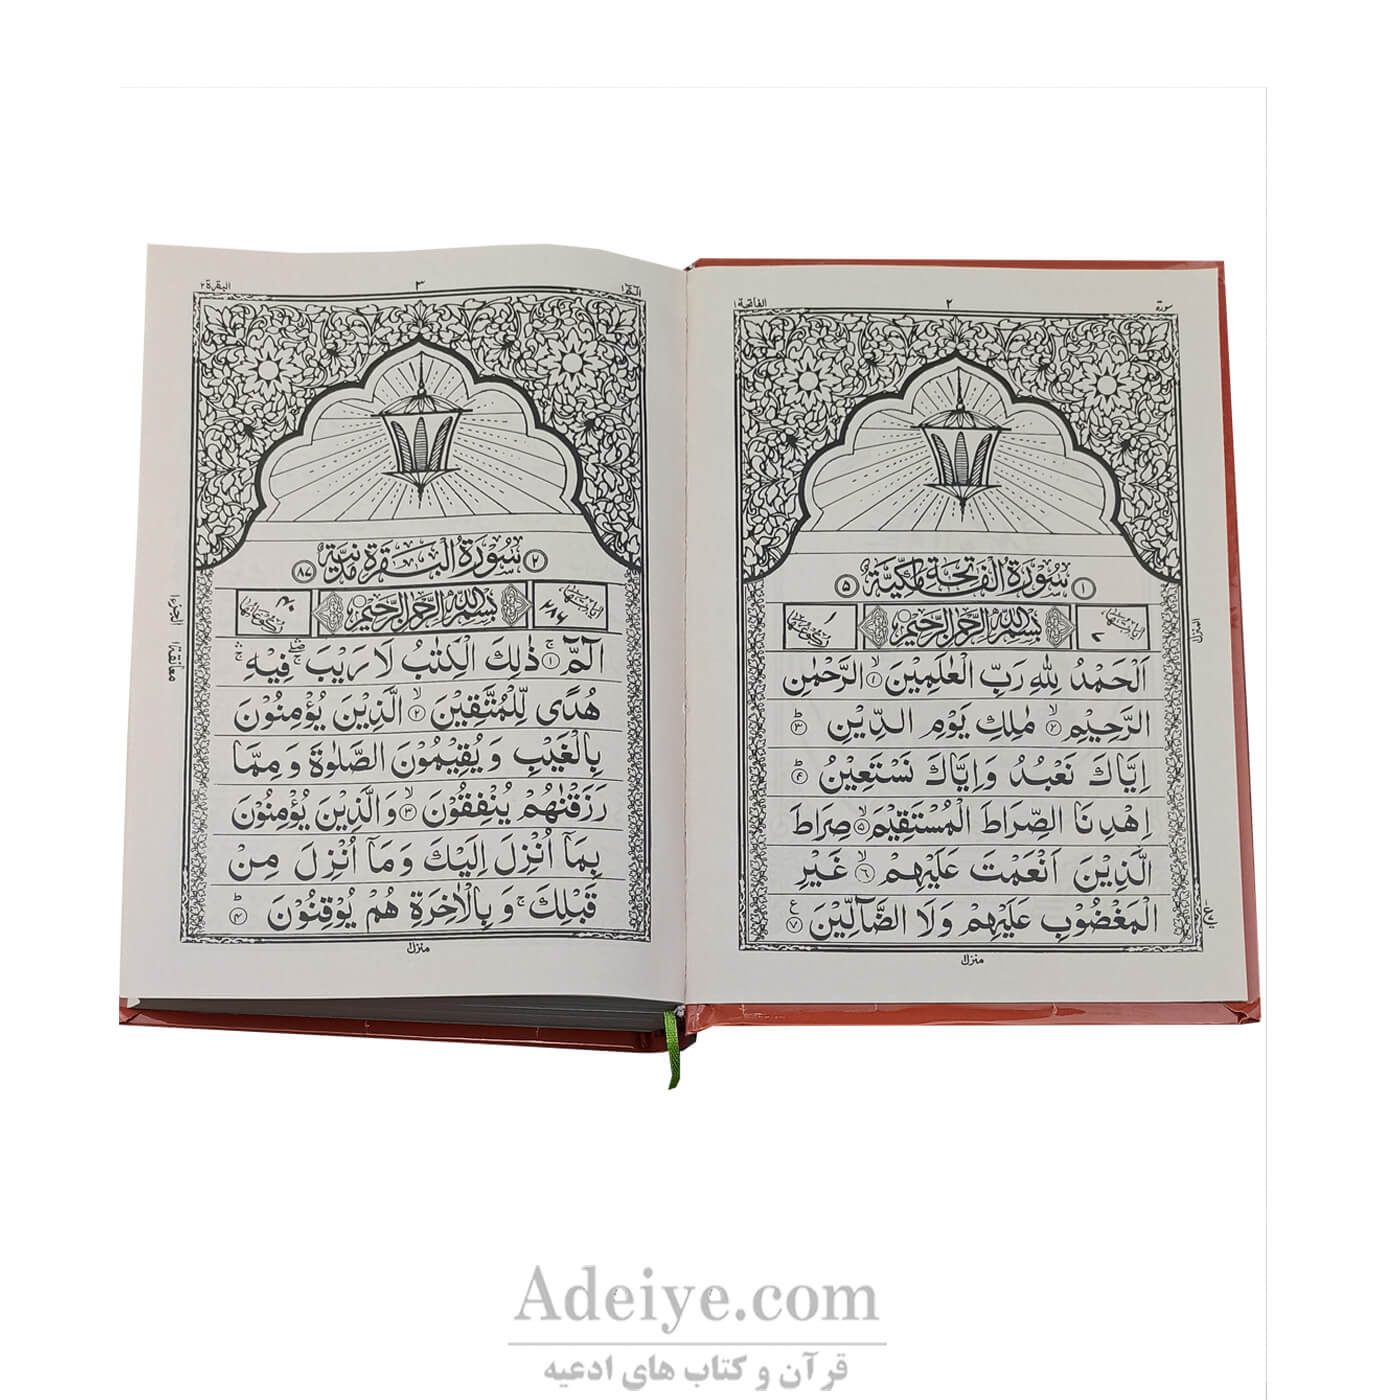 سورة
٢
الفاتحة ١
١ سُوْرَةُ الْفَاتِحَةِ مَكِّيَّةٌ ٥
اٰيَاتُهَا ٧
بِسْمِ اللّٰهِ الرَّحْمٰنِ الرَّحِيْمِ
رُكُوْعُهَا ١
اَلْحَمْدُ لِلّٰهِ رَبِّ الْعٰلَمِيْنَ ۙ١ الرَّحْمٰنِ
الرَّحِيْمِ ۙ٢ مٰلِكِ يَوْمِ الدِّيْنِ ؕ٣
اِيَّاكَ نَعْبُدُ وَاِيَّاكَ نَسْتَعِيْنُ ؕ٤
اِهْدِنَا الصِّرَاطَ الْمُسْتَقِيْمَ ۙ٥ صِرَاطَ
الَّذِيْنَ اَنْعَمْتَ عَلَيْهِمْ ۙ٦ غَيْرِ
الْمَغْضُوْبِ عَلَيْهِمْ وَلَا الضَّآلِّيْنَ ٧
منزل ١
منزل ١
الٓمّٓ ١
٣
البقرة ٢
٢ سُوْرَةُ الْبَقَرَةِ مَدَنِيَّةٌ ٨٧
اٰيَاتُهَا ٢٨٦
بِسْمِ اللّٰهِ الرَّحْمٰنِ الرَّحِيْمِ
رُكُوْعَاتُهَا ٤٠
الٓمّٓ ۚ١ ذٰلِكَ الْكِتٰبُ لَا رَيْبَ ۛۖ فِيْهِ ۛۚ
هُدًى لِّلْمُتَّقِيْنَ ۙ٢ الَّذِيْنَ يُؤْمِنُوْنَ
بِالْغَيْبِ وَ يُقِيْمُوْنَ الصَّلٰوةَ وَ مِمَّا
رَزَقْنٰهُمْ يُنْفِقُوْنَ ۙ٣ وَالَّذِيْنَ يُؤْمِنُوْنَ
بِمَآ اُنْزِلَ اِلَيْكَ وَ مَآ اُنْزِلَ مِنْ
قَبْلِكَ ۚ وَ بِالْاٰخِرَةِ هُمْ يُوْقِنُوْنَ ؕ٤
الجزء ١
معانقة ١
منزل ١
Adeiye.com
قرآن و کتاب های ادعیه